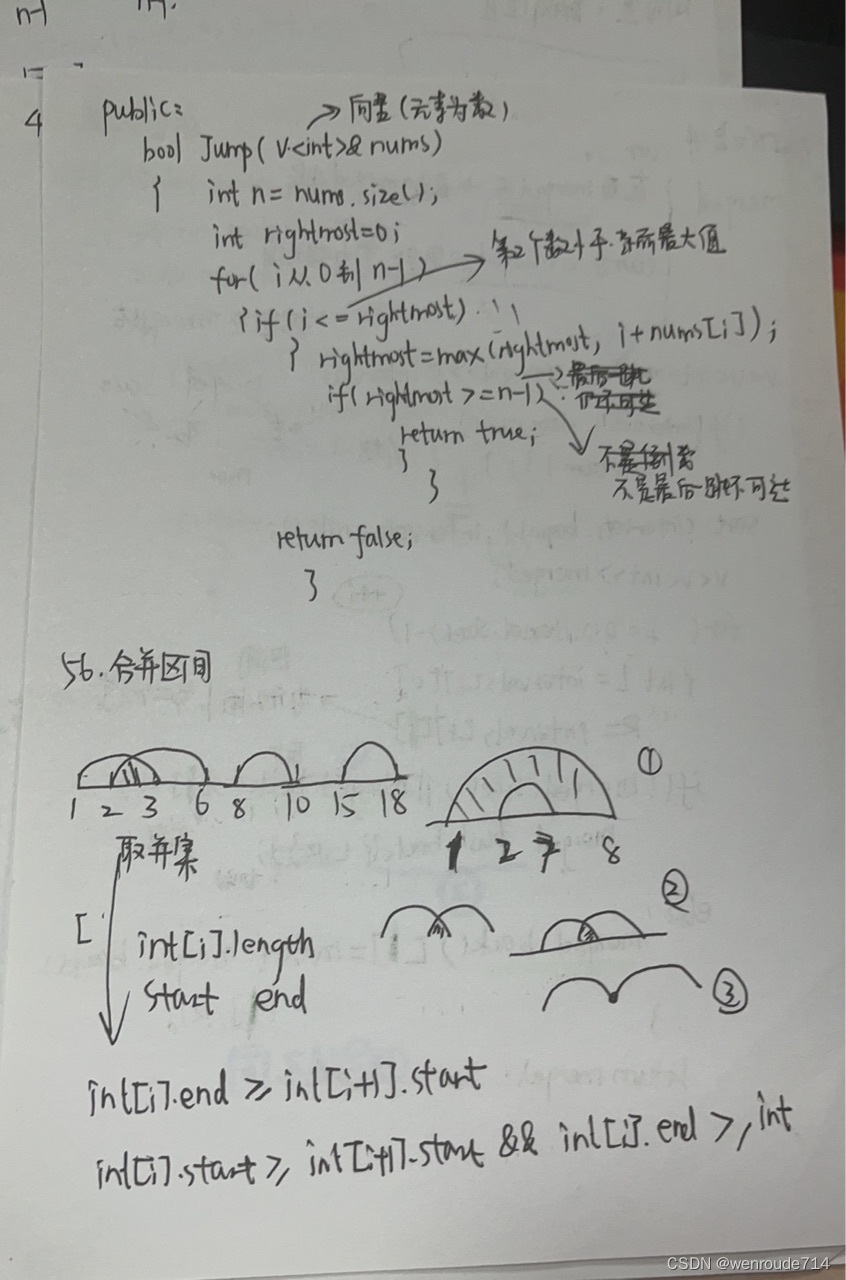 n-1
4
public:
→向量(元素为数)
bool Jump( V<int>& nums)
{ int n= nums.size();
int rightmost=0;
for( i从0到n-1)
第2个数小于.前面最大值
{if(i<=rightmost)
} rightmost=max(rightmost, i+nums[i]);
if(rightmost >=n-1)
return true;
}
不是最后一跳还可达
}
return false;
}
56.合并区间
①
1 2 3 6 8 10 15 18
1 2 7 8
取并集
②
[
int[i].length
start end
③
int[i].end ≥ int[i+1].start
int[i].start≥ int[i+1].start && int[i].end ≥, int
CSDN @wenroude714